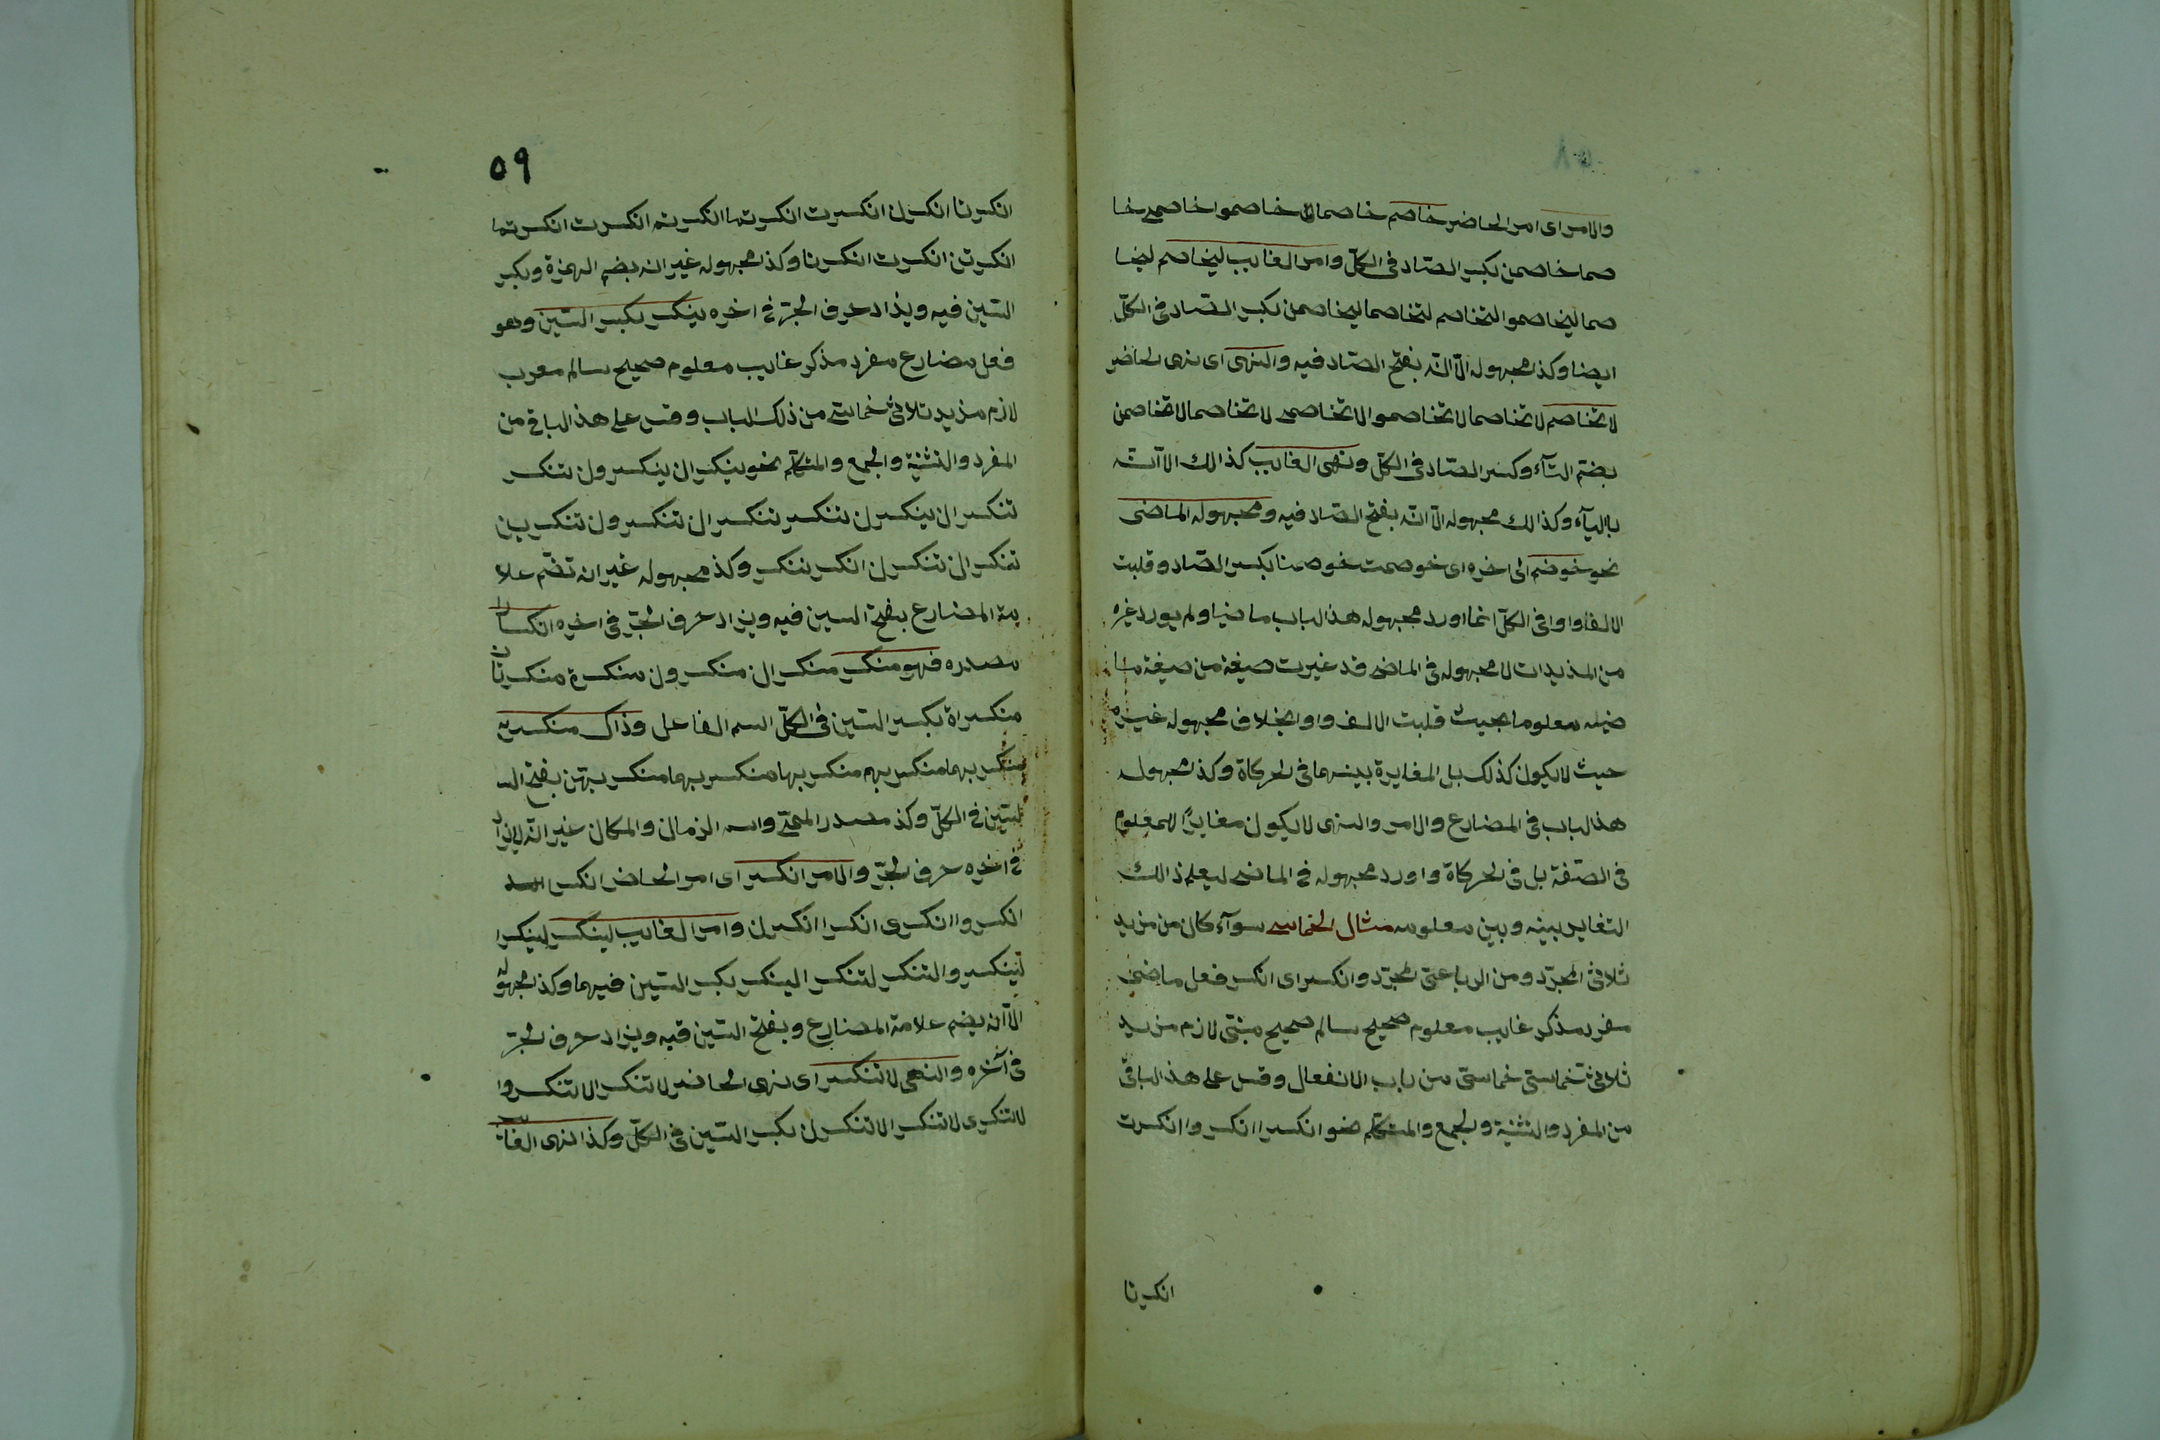 ٥٨
والامر اى امر الحاضر خاصم خاصما خاصموا خاصمى خا
صما خاصمن بكسر الصاد فى الكلّ وامر الغايب ليخاصم ليخا
صما ليخاصموا لتخاصم لتخاصما ليخاصمن بكسر الصاد فى الكلّ
ايضا وكذ مجهوله الّا انّه بفتح الصاد فيه والنهى اى نهى الحاضر
لا تخاصم لا تخاصما لا تخاصموا لا تخاصمى لا تخاصما لا تخاصمن
بضم التآء وكسر الصاد فى الكلّ ونهى الغايب كذالك الا انّه
بالياء وكذالك مجهوله الّا انّه بفتح الصاد فيه ومجهوله الماضى
نحو خوصم الى اخره اى خوصمت خوصمنا بكسر الصاد وقلبت
الالف واوا فى الكلّ انما اورد مجهوله هذ الباب ماضيا ولم يورد غيره
من المذيدات لا مجهوله فى الماضى قد غيرت صيغة من صيغة ما
ضيه معلوما بحيث قلبت الالف واوا بخلاف مجهوله غيره
حيث لا يكون كذلك بل المغايرة بينهما فى الحركاة وكذ مجهوله
هذ الباب فى المضارع والامر والنهى لا يكون مغايرًا للمعلوم
فى الصفة بل فى الحركاة واورد مجهوله فى الماضى ليعلم ذالك
التغاير بينه وبين معلومه مثال الخماسى سوآء كان من مزيد
ثلاثى المجرّد ومن الرباعى المجرّد وانكسر اى انكسر فعل ماضى
مفرد مذكر غايب معلوم صحيح سالم صحيح مبنى لازم مزيد
ثلاثى خماسى خماسى من باب الانفعال وقس على هذ الباقى
من المفرد والتثنية والجمع والمتكلم نحو انكسرا انكسروا انكسرت
انكسرتا
٥٩
انكسرتا انكسرن انكسرت انكسرتما انكسرتم انكسرت انكسرتما
انكسرتن انكسرت انكسرنا وكذ مجهوله غير انه بضم الهمزة وبكسر
السّين فيه ويذاد حرف الجرّ فى اخره ينكسر بكسر السّين وهو
فعل مضارع مفرد مذكر غايب معلوم صحيح سالم معرب
لازم مزيد ثلاثى خماسى من ذلك الباب وقس على هذ الباقى من
المفرد والتثنية والجمع والمتكلم نحو ينكسران ينكسرون تنكسر
تنكسران ينكسرن تنكسر تنكسران تنكسرون تنكسرين
تنكسران تنكسرن انكسر ننكسر وكذ مجهوله غير انه تضم علا
مة المضارع بفتح السين فيه ويزاد حرف الجرّ فى اخره انكسارا
مصدره فهو منكسر منكسران منكسرون منكسرة منكسرتان
منكسراة بكسر السّين فى الكلّ اسم الفاعل وذاك منكسر به
منكسر بهما منكسر بهم منكسر بها منكسر بهما منكسر بهن بفتح الـ
لسّين فى الكلّ وكذ مصدر الميمى واسم الزمان والمكان غير انّه لا يزاد
فى اخره حرف الجرّ والامر انكسر اى امر الحاضر انكسرا
انكسروا انكسرى انكسرا انكسرن وامر الغايب لينكسر لينكسرا
لينكسروا لتنكسر لتنكسرا لينكسر بكسر السّين فيهما وكذ مجهوله
الّا انّه بضم علامة المضارع وبفتح السّين فيه ويزاد حرف الجرّ
فى آخره والنهى لا تنكسر اى نهى الحاضر لا تنكسرا لا تنكسروا
لا تنكسرى لا تنكسرا لا تنكسرن بكسر السّين فى الكلّ وكذا نهى الغا